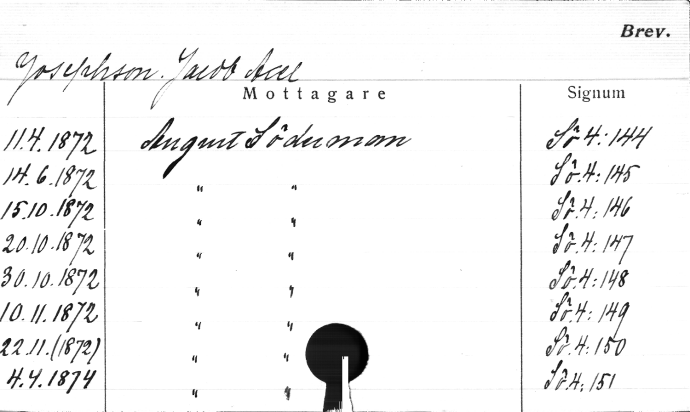 Brev.
Josephson. Jacob Axel
Mottagare Signum
11.4.1872 August Söderman Sö 4:144
14.6.1872 " " Sö.4:145
15.10.1872 " " Sö.4:146
20.10.1872 " " Sö.4:147
30.10.1872 " " Sö.4:148
10.11.1872 " " Sö.4:149
22.11.(1872) " " Sö.4:150
4.4.1874 " " Sö.4:151